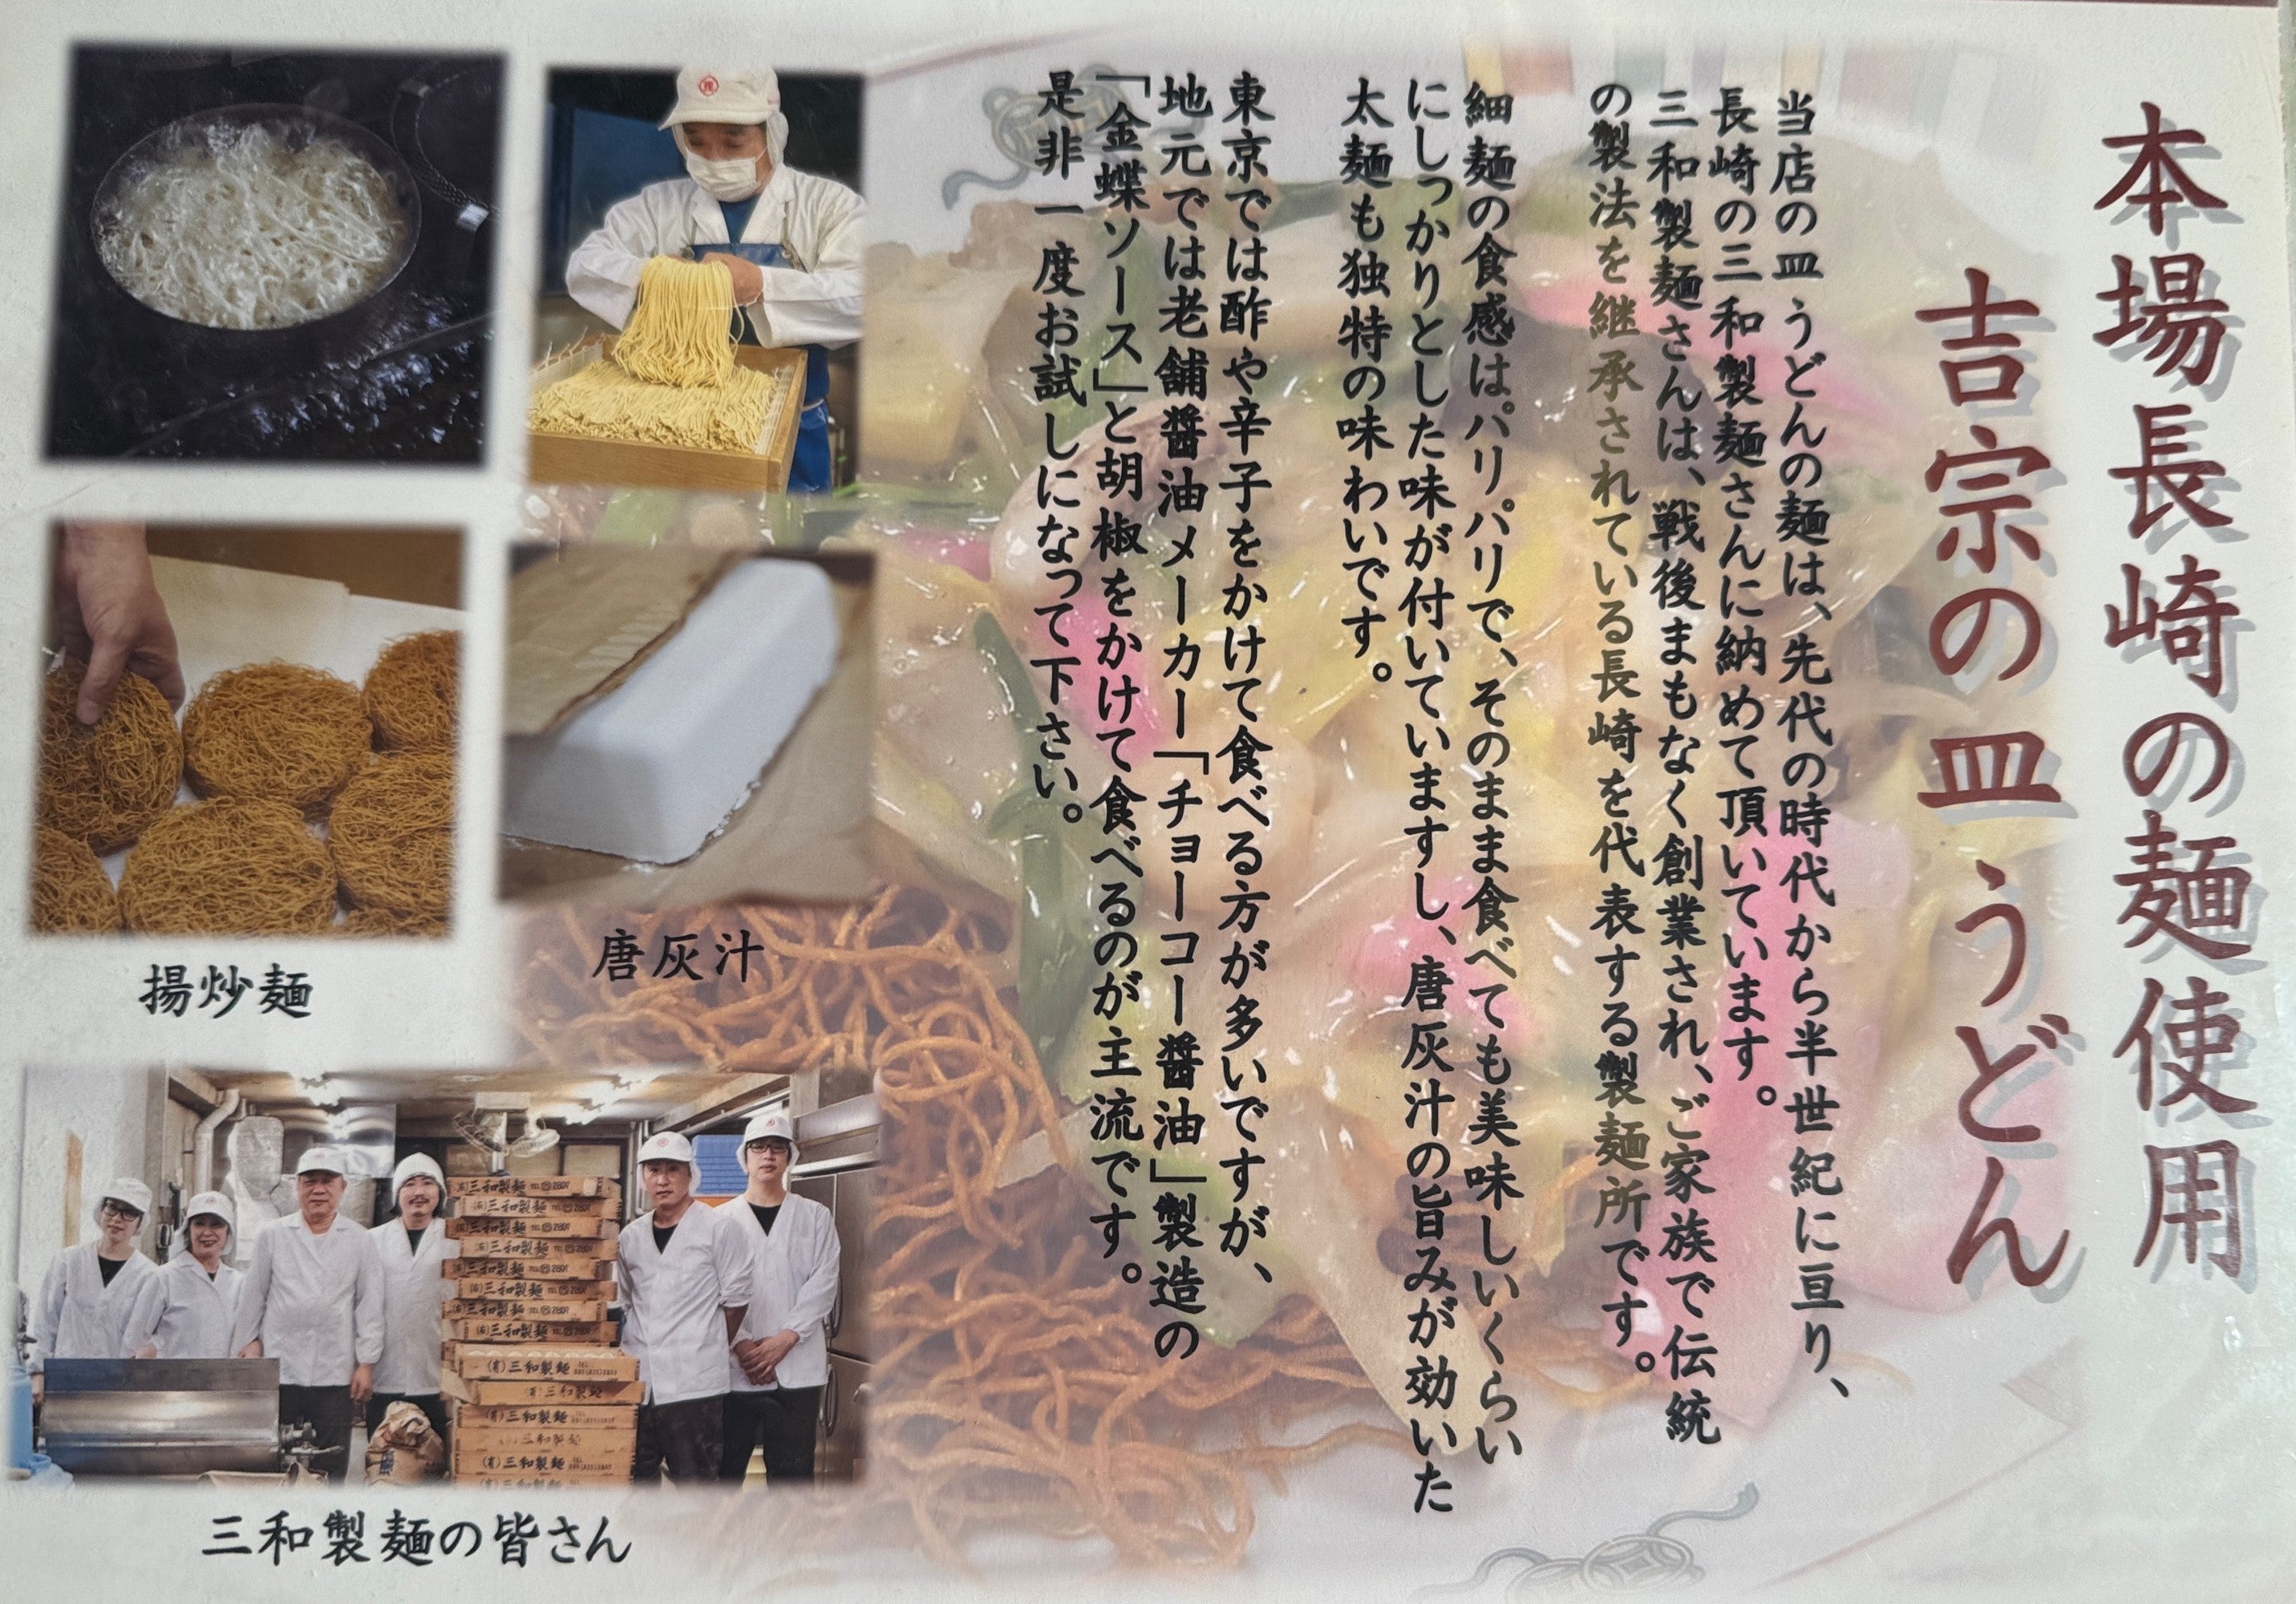 本場長崎の麺使用
吉宗の皿うどん
当店の皿うどんの麺は、先代の時代から半世紀に亘り、
長崎の三和製麺さんに納めて頂いています。
三和製麺さんは、戦後まもなく創業され、ご家族で伝統
の製法を継承されている長崎を代表する製麺所です。
細麺の食感はパリパリで、そのまま食べても美味しいくらい
にしっかりとした味が付いていますし、唐灰汁の旨みが効いた
太麺も独特の味わいです。
東京では酢や辛子をかけて食べる方が多いですが、
地元では老舗醤油メーカー「チョーコー醤油」製造の
「金蝶ソース」と胡椒をかけて食べるのが主流です。
是非一度お試しになって下さい。
唐灰汁
揚炒麺
三和製麺
三和製麺
三和製麺
三和製麺
三和製麺
三和製麺
三和製麺
三和製麺
(有)三和製麺
(有)三和製麺
(有)三和製麺
三和製麺
(有)三和製麺
三和製麺の皆さん